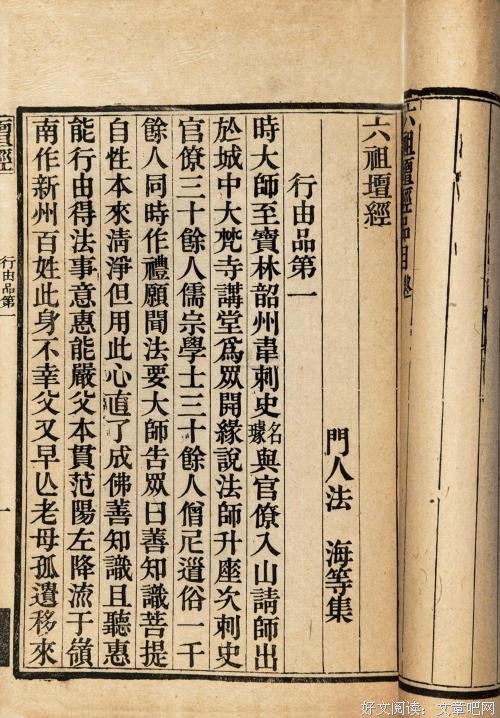 六祖壇經品目終
六祖壇經
門人法 海等集
行由品第一
時大師至寶林韶州韋刺史名璩與官僚入山請師出
於城中大梵寺講堂爲眾開緣說法師升座次刺史
官僚三十餘人儒宗學士三十餘人僧尼道俗一千
餘人同時作禮願聞法要大師告眾曰善知識菩提
自性本來清淨但用此心直了成佛善知識且聽惠
能行由得法事意惠能嚴父本貫范陽左降流于嶺
南作新州百姓此身不幸父又早亾老母孤遺移來
壇經
行由品第一
一
好文阅读：文章吧网